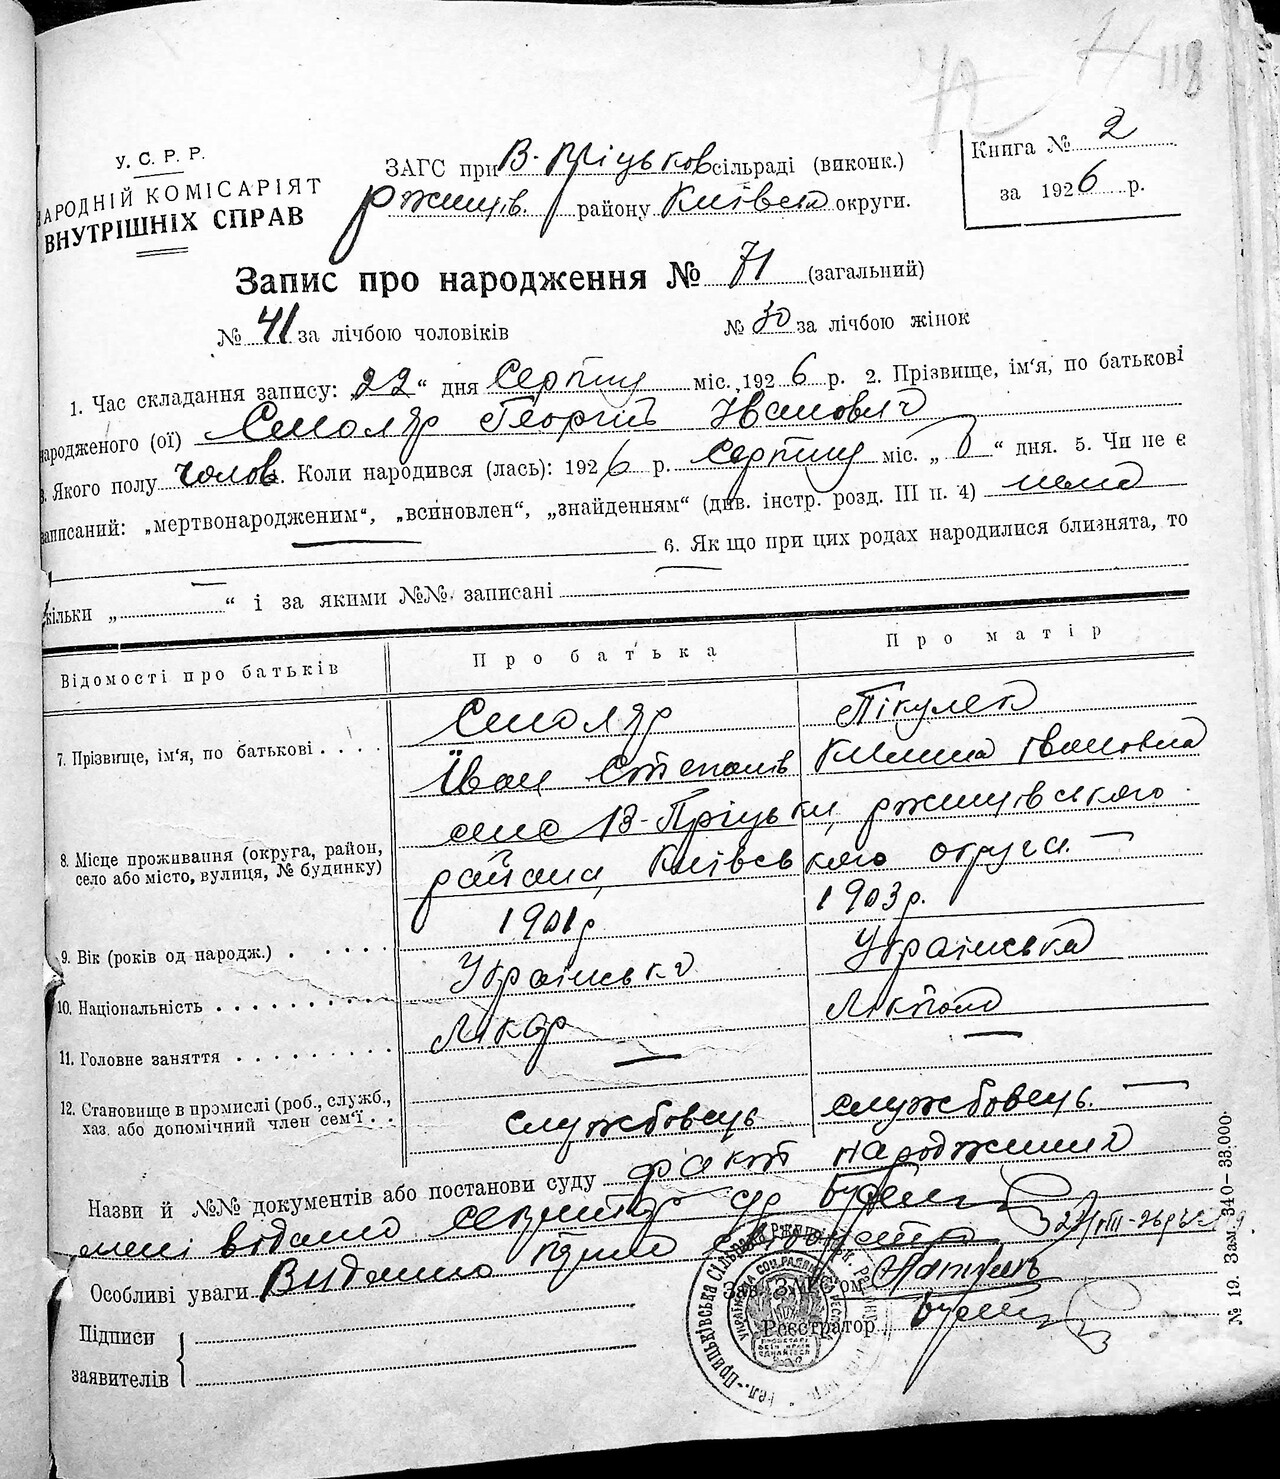 118
У. С. Р. Р.
НАРОДНІЙ КОМІСАРІЯТ
ВНУТРІШНІХ СПРАВ
ЗАГС при В-Пріцьков сільраді (виконк.)
Ржищів. району Київська округи.
Книга № 2
за 1926 р.
Запис про народження № 71 (загальний)
№ 41 за лічбою чоловіків № 30 за лічбою жінок
1. Час складання запису: 22 “ дня Серпня міс. 1926 р. 2. Прізвище, ім'я, по батькові
народженого (ої) Смоляр Георгій Іванович
3. Якого полу чолов. Коли народився (лась): 1926 р. серпня міс. „ 8 “ дня. 5. Чи не є
записаний: „мертвонародженим“, „всиновлен“, „знайденням“ (див. інстр. розд. III п. 4) нема
6. Як що при цих родах народилися близнята, то
кільки „ “ і за якими №№ записані
Відомості про батьків Про батька Про матір
7. Прізвище, ім'я, по батькові . . . . Смоляр Іван Степанів Пікулек Килина Івановна
8. Місце проживання (округа, район,
село або місто, вулиця, № будинку)
село В-Пріцьки, Ржищівського
района, Київського округа. —
9. Вік (років од народж.) . . . . . 1901р 1903р.
10. Національність . . . . . . . . . Українська Українська
11. Головне заняття . . . . . . . . . Лікар —
12. Становище в промислі (роб., служб.,
хаз. або допомічний член сем'ї . . службовець службовець. —
Назви й №№ документів або постанови суду факт народження
мені відомо
Особливі уваги Видано
Зав. ЗАГС'ом
Реєстратор
Підписи
заявителів
№ 19. Зам. 340—33.000